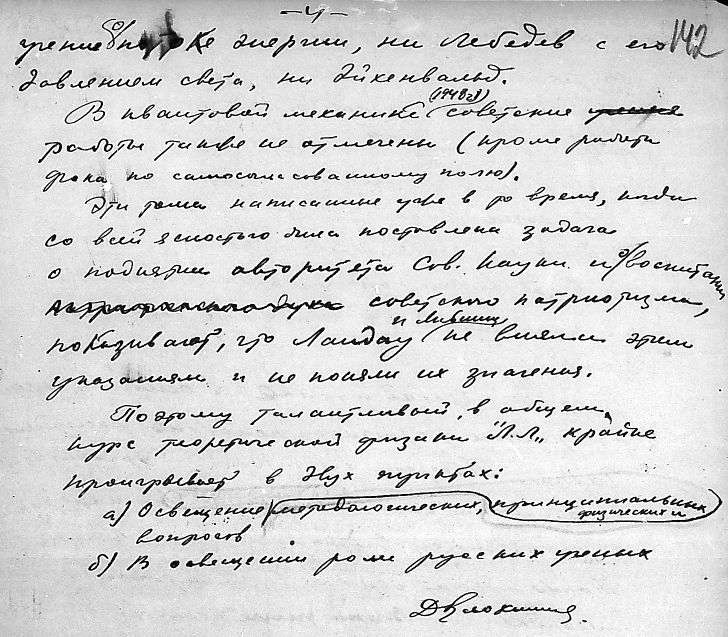 — 4 —
142
учение о потоке энергии, ни Лебедев с его
давлением света, ни Эйхенвальд.
В квантовой механике (1948 г) советские
работы также не отмечены (кроме работы
Фока по самосогласованному полю).
Эти тома написанные уже в то время, когда
со всей ясностью была поставлена задача
о поднятии авторитета Сов. науки и о воспитании
советского патриотизма,
показывают, что Ландау и Лившиц не вняли этим
указаниям и не поняли их значения.
Поэтому талантливый, в общем,
курс теоретической физики "Л.Л." крайне
проигрывает в двух пунктах:
а) Освещение методологических, принципиальных
физических и
вопросов
б) В освещении роли русских ученых
ДБлохинцев.